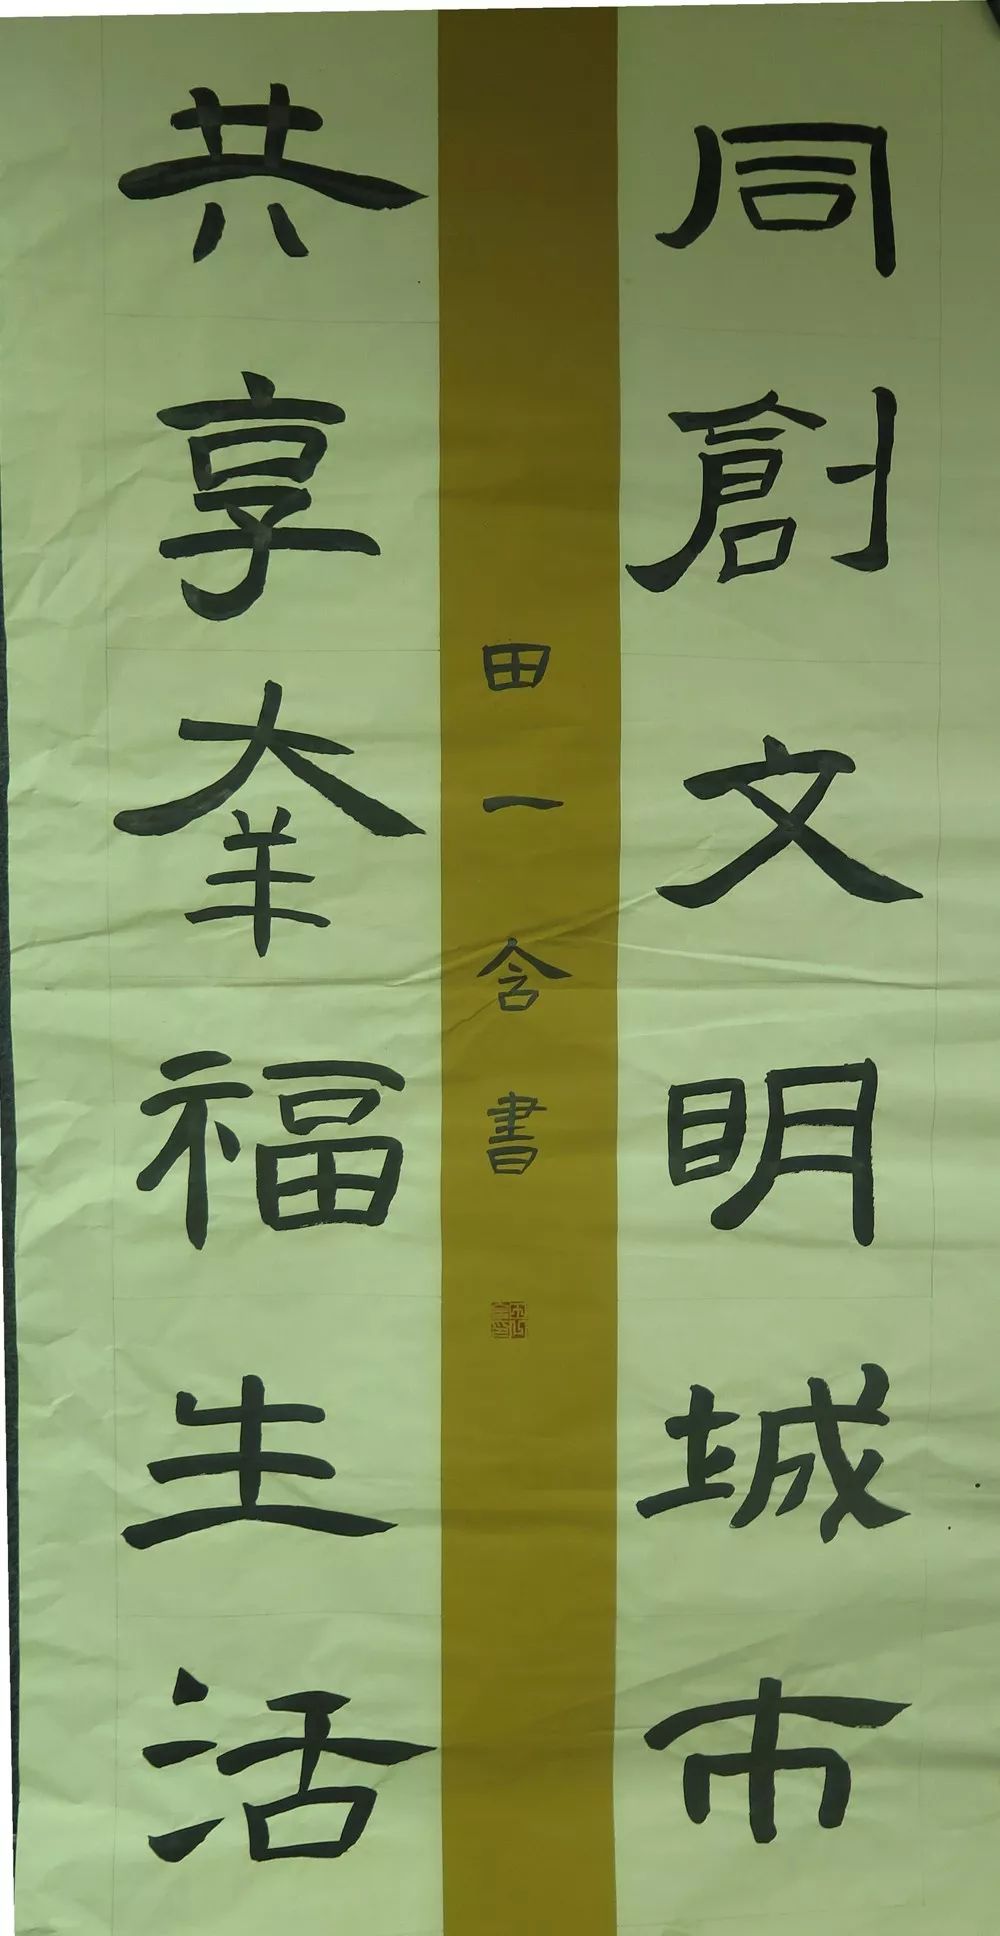 同創文明城市
共享幸福生活
田一含書